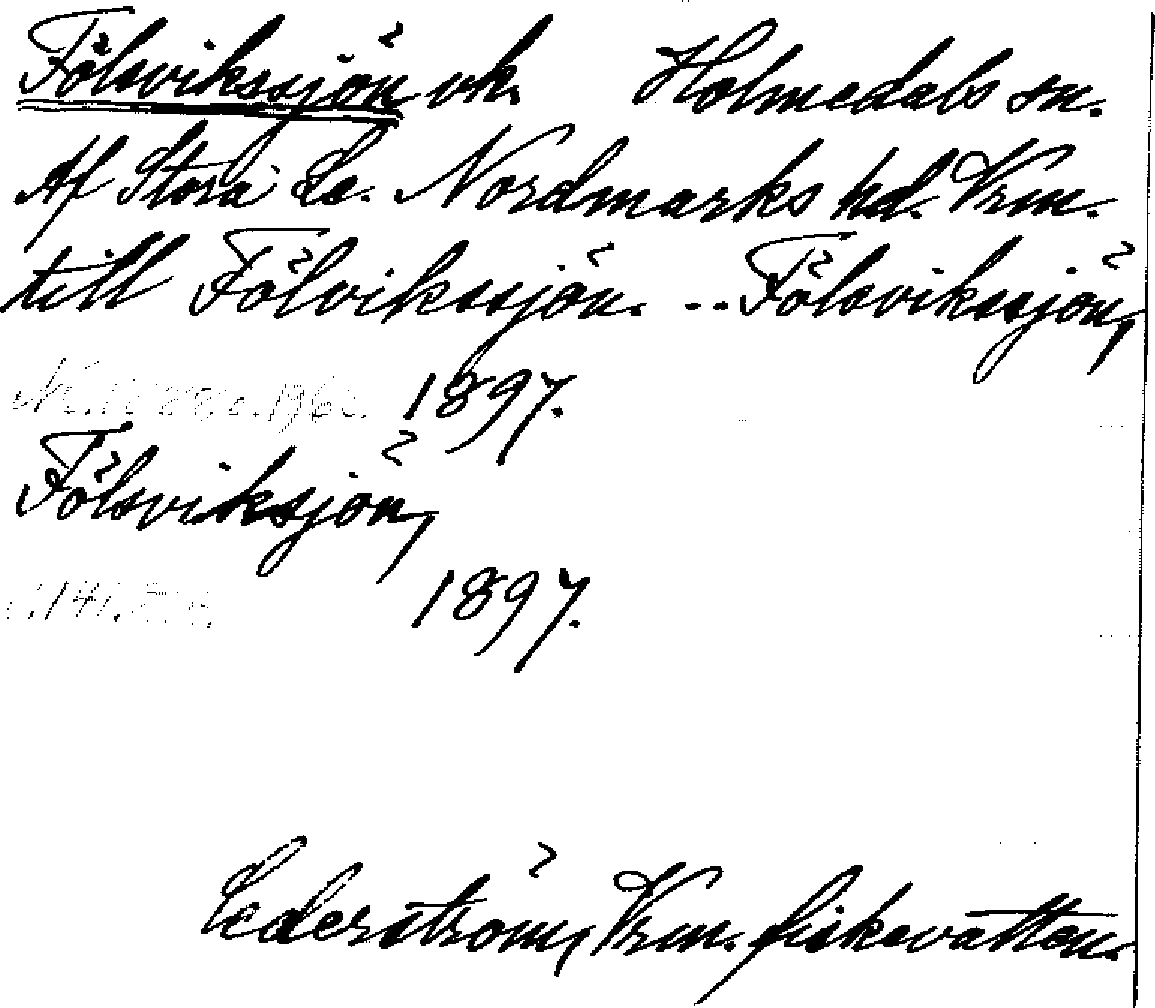 Fölsvikssjön vk. Holmedals sn.
Af Stora Le. Nordmarks hd. Vrm.
till Fölvikssjön. -- Fölsvikssjön,
1897.
Fölsviksjön,
1897.
Cederström, Vrm. fiskevatten.